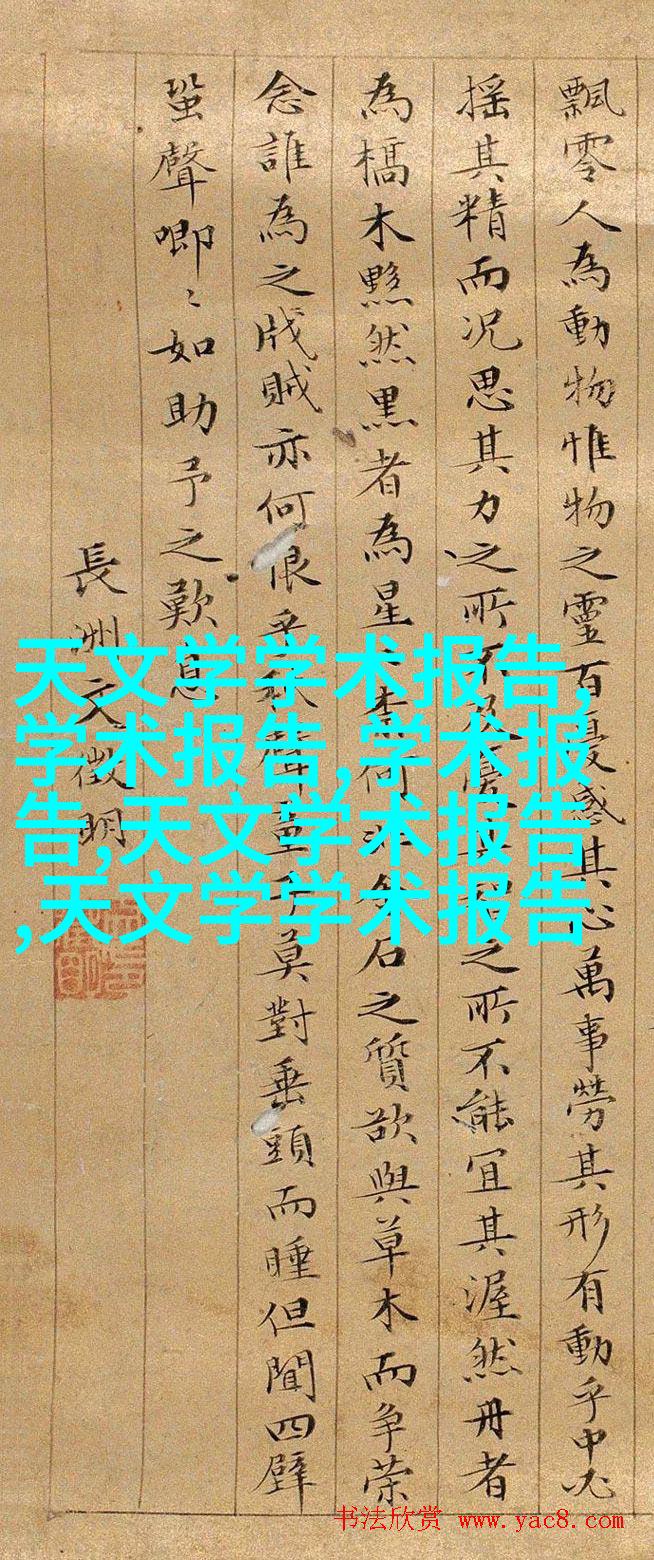 飄零人為動物惟物之靈百憂感其心萬事勞其形有動乎中必
搖其精而況思其力之所不憂之所不能宜其渥然丹者
為槁木黟然黒者為星柰何石之質欲與草木而争荣
念誰為之戕賊亦何恨乎秋聲莫對垂頭而睡但聞四壁
蛩聲唧〻如助予之歎息
長洲文徵明
天文学学术报告,
学术报告,学术报
告,天文学术报告
,天文学学术报告
书法欣赏 www.yac8.com